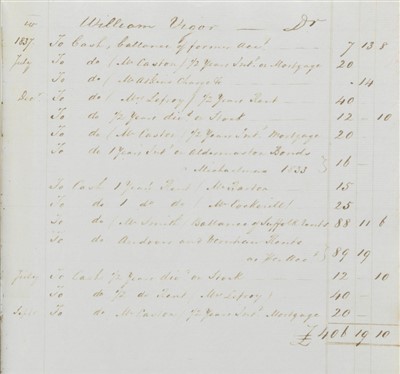 William Vigor — Dr
1837 To Cash, ballance of former Acct 7 13 8
July To do (Mr Caston) 1/2 Years Intt on Mortgage 20
To do - 14
Decr To do (Mrs Lefroy) 1/2 Years Rent 40 -
To do 1/2 Years divd on Stock 12 - 10
To do (Mr Caston) 1/2 Years Intt Mortgage 20 -
To do 1 Years Intt on Aldermaston Bonds
Michaelmas 1833 } 16 -
To Cash 1 Years Rent (Mr 15
To do 1 do do (Mr Cockerell) 25
To do (Mr Smith) Ballance of Suffolk Rents 88 11 6
To do Andover and Rents
as Per Acct } 89 19
July To Cash 1/2 Years divd on Stock 12 - 10
To do 1/2 do Rent Mrs Lefroy) 40 -
Sept To do Mr Caston) 1/2 Years Intt Mortgage 20 -
£ 406 19 10